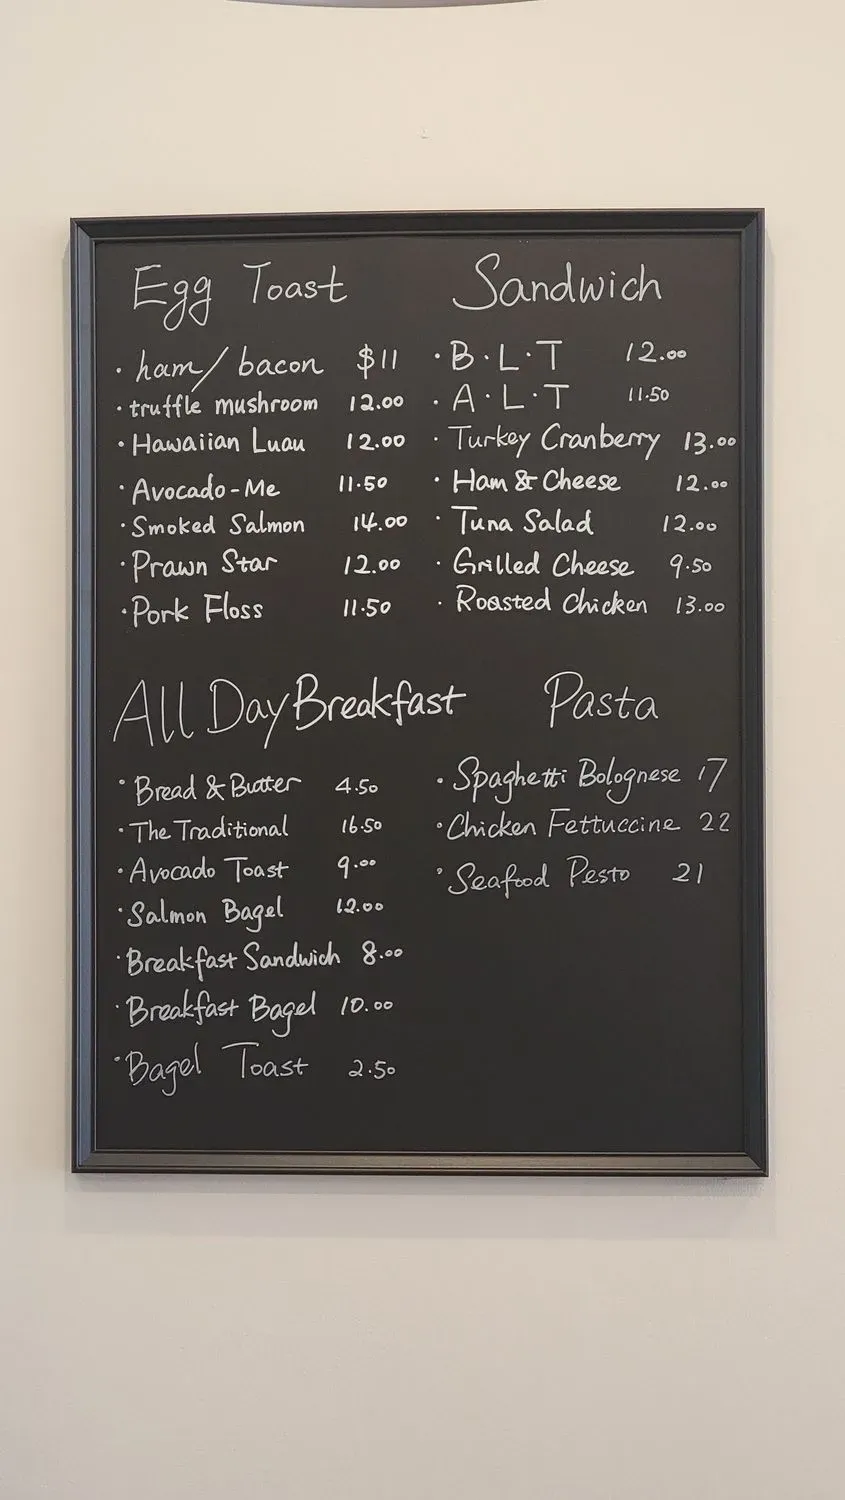 Egg Toast
· ham/bacon $11
· truffle mushroom 12.00
· Hawaiian Luau 12.00
· Avocado-Me 11.50
· Smoked Salmon 14.00
· Prawn Star 12.00
· Pork Floss 11.50
Sandwich
· B·L·T 12.00
· A·L·T 11.50
· Turkey Cranberry 13.00
· Ham & Cheese 12.00
· Tuna Salad 12.00
· Grilled Cheese 9.50
· Roasted Chicken 13.00
All Day Breakfast
· Bread & Butter 4.50
· The Traditional 16.50
· Avocado Toast 9.00
· Salmon Bagel 12.00
· Breakfast Sandwich 8.00
· Breakfast Bagel 10.00
· Bagel Toast 2.50
Pasta
· Spaghetti Bolognese 17
· Chicken Fettuccine 22
· Seafood Pesto 21